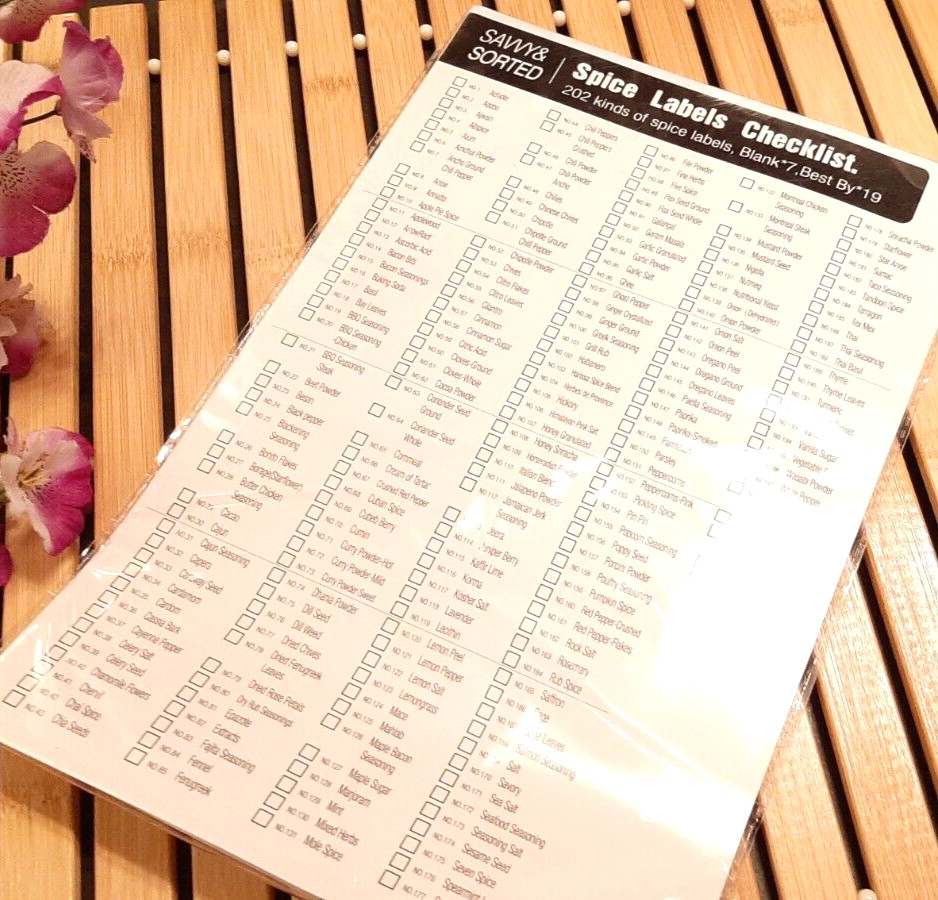 SAVVY&
SORTED
Spice Labels Checklist.
202 kinds of spice labels, Blank*7,Best By*19
NO.1 Achiote
NO.2 Adobo
NO.3 Ajwain
NO.4 Allspice
NO.5 Alum
NO.6 Amchur Powder
NO.7 Ancho Ground
Chili Pepper
NO.8 Anise
NO.9 Annatto
NO.10 Apple Pie Spice
NO.11 Applewood
NO.12 ArrowRoot
NO.13 Ascorbic Acid
NO.14 Bacon Bits
NO.15 Bacon Seasonings
NO.16 Baking Soda
NO.17 Basil
NO.18 Bay Leaves
NO.19 BBQ Seasoning
NO.20 -Chicken
NO.21 BBQ Seasoning
Steak
NO.22 Beet Powder
NO.23 Besan
NO.24 Black pepper
NO.25 Blackening
Seasoning
NO.26 Bonito Flakes
NO.27 Borage(Starflower)
NO.28 Butter Chicken
Seasoning
NO.29 Cacao
NO.30 Cajun
NO.31 Cajun Seasoning
NO.32 Capers
NO.33 Caraway Seed
NO.34 Cardamom
NO.35 Cardom
NO.36 Cassia Bark
NO.37 Cayenne Pepper
NO.38 Celery Salt
NO.39 Celery Seed
NO.40 Chamomile Flowers
NO.41 Chervil
NO.42 Chai Spice
NO.43 Chia Seeds
NO.44 Chili Peppers
NO.45 Chili Peppers
Crushed
NO.46 Chili Powder
NO.47 Chili Powder
Ancho
NO.48 Chilies
NO.49 Chinese Chives
NO.50 Chipotle
NO.51 Chipotle Ground
Chili Pepper
NO.52 Chipotle Powder
NO.53 Chives
NO.54 Citro Flakes
NO.55 Citro Leaves
NO.56 Cilantro
NO.57 Cinnamon
NO.58 Cinnamon Sugar
NO.59 Citric Acid
NO.60 Cloves Ground
NO.61 Cloves Whole
NO.62 Cocoa Powder
NO.63 Coriander Seed
Ground
NO.64 Coriander Seed
Whole
NO.65 Cornmeal
NO.66 Cream of Tartar
NO.67 Crushed Red Pepper
NO.68 Cuban Spice
NO.69 Cubeb Berry
NO.70 Cumin
NO.71 Curry Powder-Hot
NO.72 Curry Powder-Mild
NO.73 Curry Powder-Sweet
NO.74 Dhania Powder
NO.75 Dill Seed
NO.76 Dill Weed
NO.77 Dried Chives
NO.78 Dried Fenugreek
Leaves
NO.79 Dried Rose Petals
NO.80 Dry Rub Seasonings
NO.81 Epazote
NO.82 Extracts
NO.83 Fajita Seasoning
NO.84 Fennel
NO.85 Fenugreek
NO.86 File Powder
NO.87 Fine Herbs
NO.88 Five Spice
NO.89 Flax Seed Ground
NO.90 Flax Seed Whole
NO.91 Galangal
NO.92 Garam Masala
NO.93 Garlic Granulated
NO.94 Garlic Powder
NO.95 Garlic Salt
NO.96 Ghee
NO.97 Ghost Pepper
NO.98 Ginger Crystallized
NO.99 Ginger Ground
NO.100 Greek Seasoning
NO.101 Grill Rub
NO.102 Habanero
NO.103 Harissa Spice Blend
NO.104 Herbes de Provence
NO.105 Hickory
NO.106 Himalayan Pink Salt
NO.107 Honey Granulated
NO.108 Honey Sriracha
NO.109 Horseradish
NO.110 Italian Blend
NO.111 Jalapeno Powder
NO.112 Jamaican Jerk
Seasoning
Jeera
NO.114 Juniper Berry
NO.115 Kaffir Lime
NO.116 Korma
NO.117 Kosher Salt
NO.118 Lavender
NO.119 Lecithin
NO.120 Lemon Peel
NO.121 Lemon Pepper
NO.122 Lemon Salt
NO.123 Lemongrass
NO.124 Mace
NO.125 Mahlab
NO.126 Maple Bacon
Seasoning
NO.127 Maple Sugar
NO.128 Marjoram
NO.129 Mint
NO.130 Mixed Herbs
NO.131 Mole Spice
NO.132 Montreal Chicken
Seasoning
NO.133 Montreal Steak
Seasoning
NO.134 Mustard Powder
NO.135 Mustard Seed
NO.136 Nigella
NO.137 Nutmeg
NO.138 Nutritional Yeast
NO.139 Onion (Dehydrated)
NO.140 Onion Powder
NO.141 Onion Salt
NO.142 Onion Peel
NO.143 Oregano Peel
NO.144 Oregano Ground
NO.145 Oregano Leaves
NO.146 Paella Seasoning
NO.147 Paprika
NO.148 Paprika-Smoked
NO.149
NO.150 Parsley
NO.151 Peppercorns
NO.152 Peppercorns-Pink
NO.153 Pickling Spice
NO.154 Piri Piri
NO.155 Popcorn Seasoning
NO.156 Poppy Seed
NO.157 Porcini Powder
NO.158 Poultry Seasoning
NO.159 Pumpkin Spice
NO.160 Red Pepper-Crushed
NO.161 Red Pepper-Flakes
NO.162 Rock Salt
NO.163 Rosemary
NO.164 Rub Spice
NO.165 Saffron
NO.166 Sage
NO.167 Sage Leaves
Salmon Seasoning
Salt
NO.170 Savory
NO.171 Sea Salt
NO.172 Seafood Seasoning
NO.173 Seasoning Salt
NO.174 Sesame Seed
NO.175 Seven Spice
NO.176 Spearmint
NO.177
NO.178 Sriracha Powder
NO.179 Starflower
NO.180 Star Anise
NO.181 Sumac
NO.182 Taco Seasoning
NO.183 Tandoori Spice
NO.184 Tarragon
NO.185 Tex Mex
NO.186 Thai
NO.187 Thai Seasoning
NO.188 Thai Basil
NO.189 Thyme
NO.190 Thyme Leaves
NO.191 Turmeric
Vanilla Sugar
NO.194 Vegetable
Wasabi Powder
Pepper